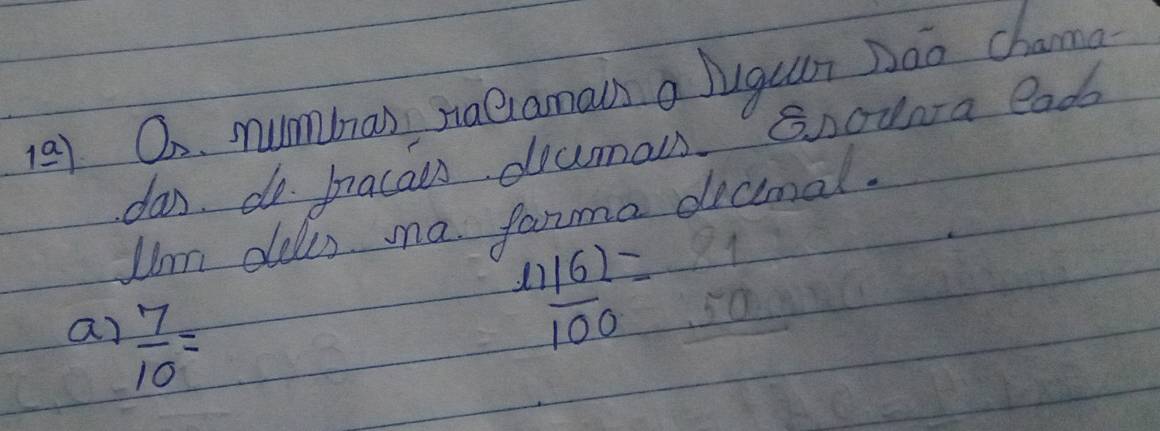 1ª) Os numbros racionais a seguir são chama-
dos de fracões decimais. Escreva cada
um deles na forma decimal.
a) 7/10 = 162/100 =